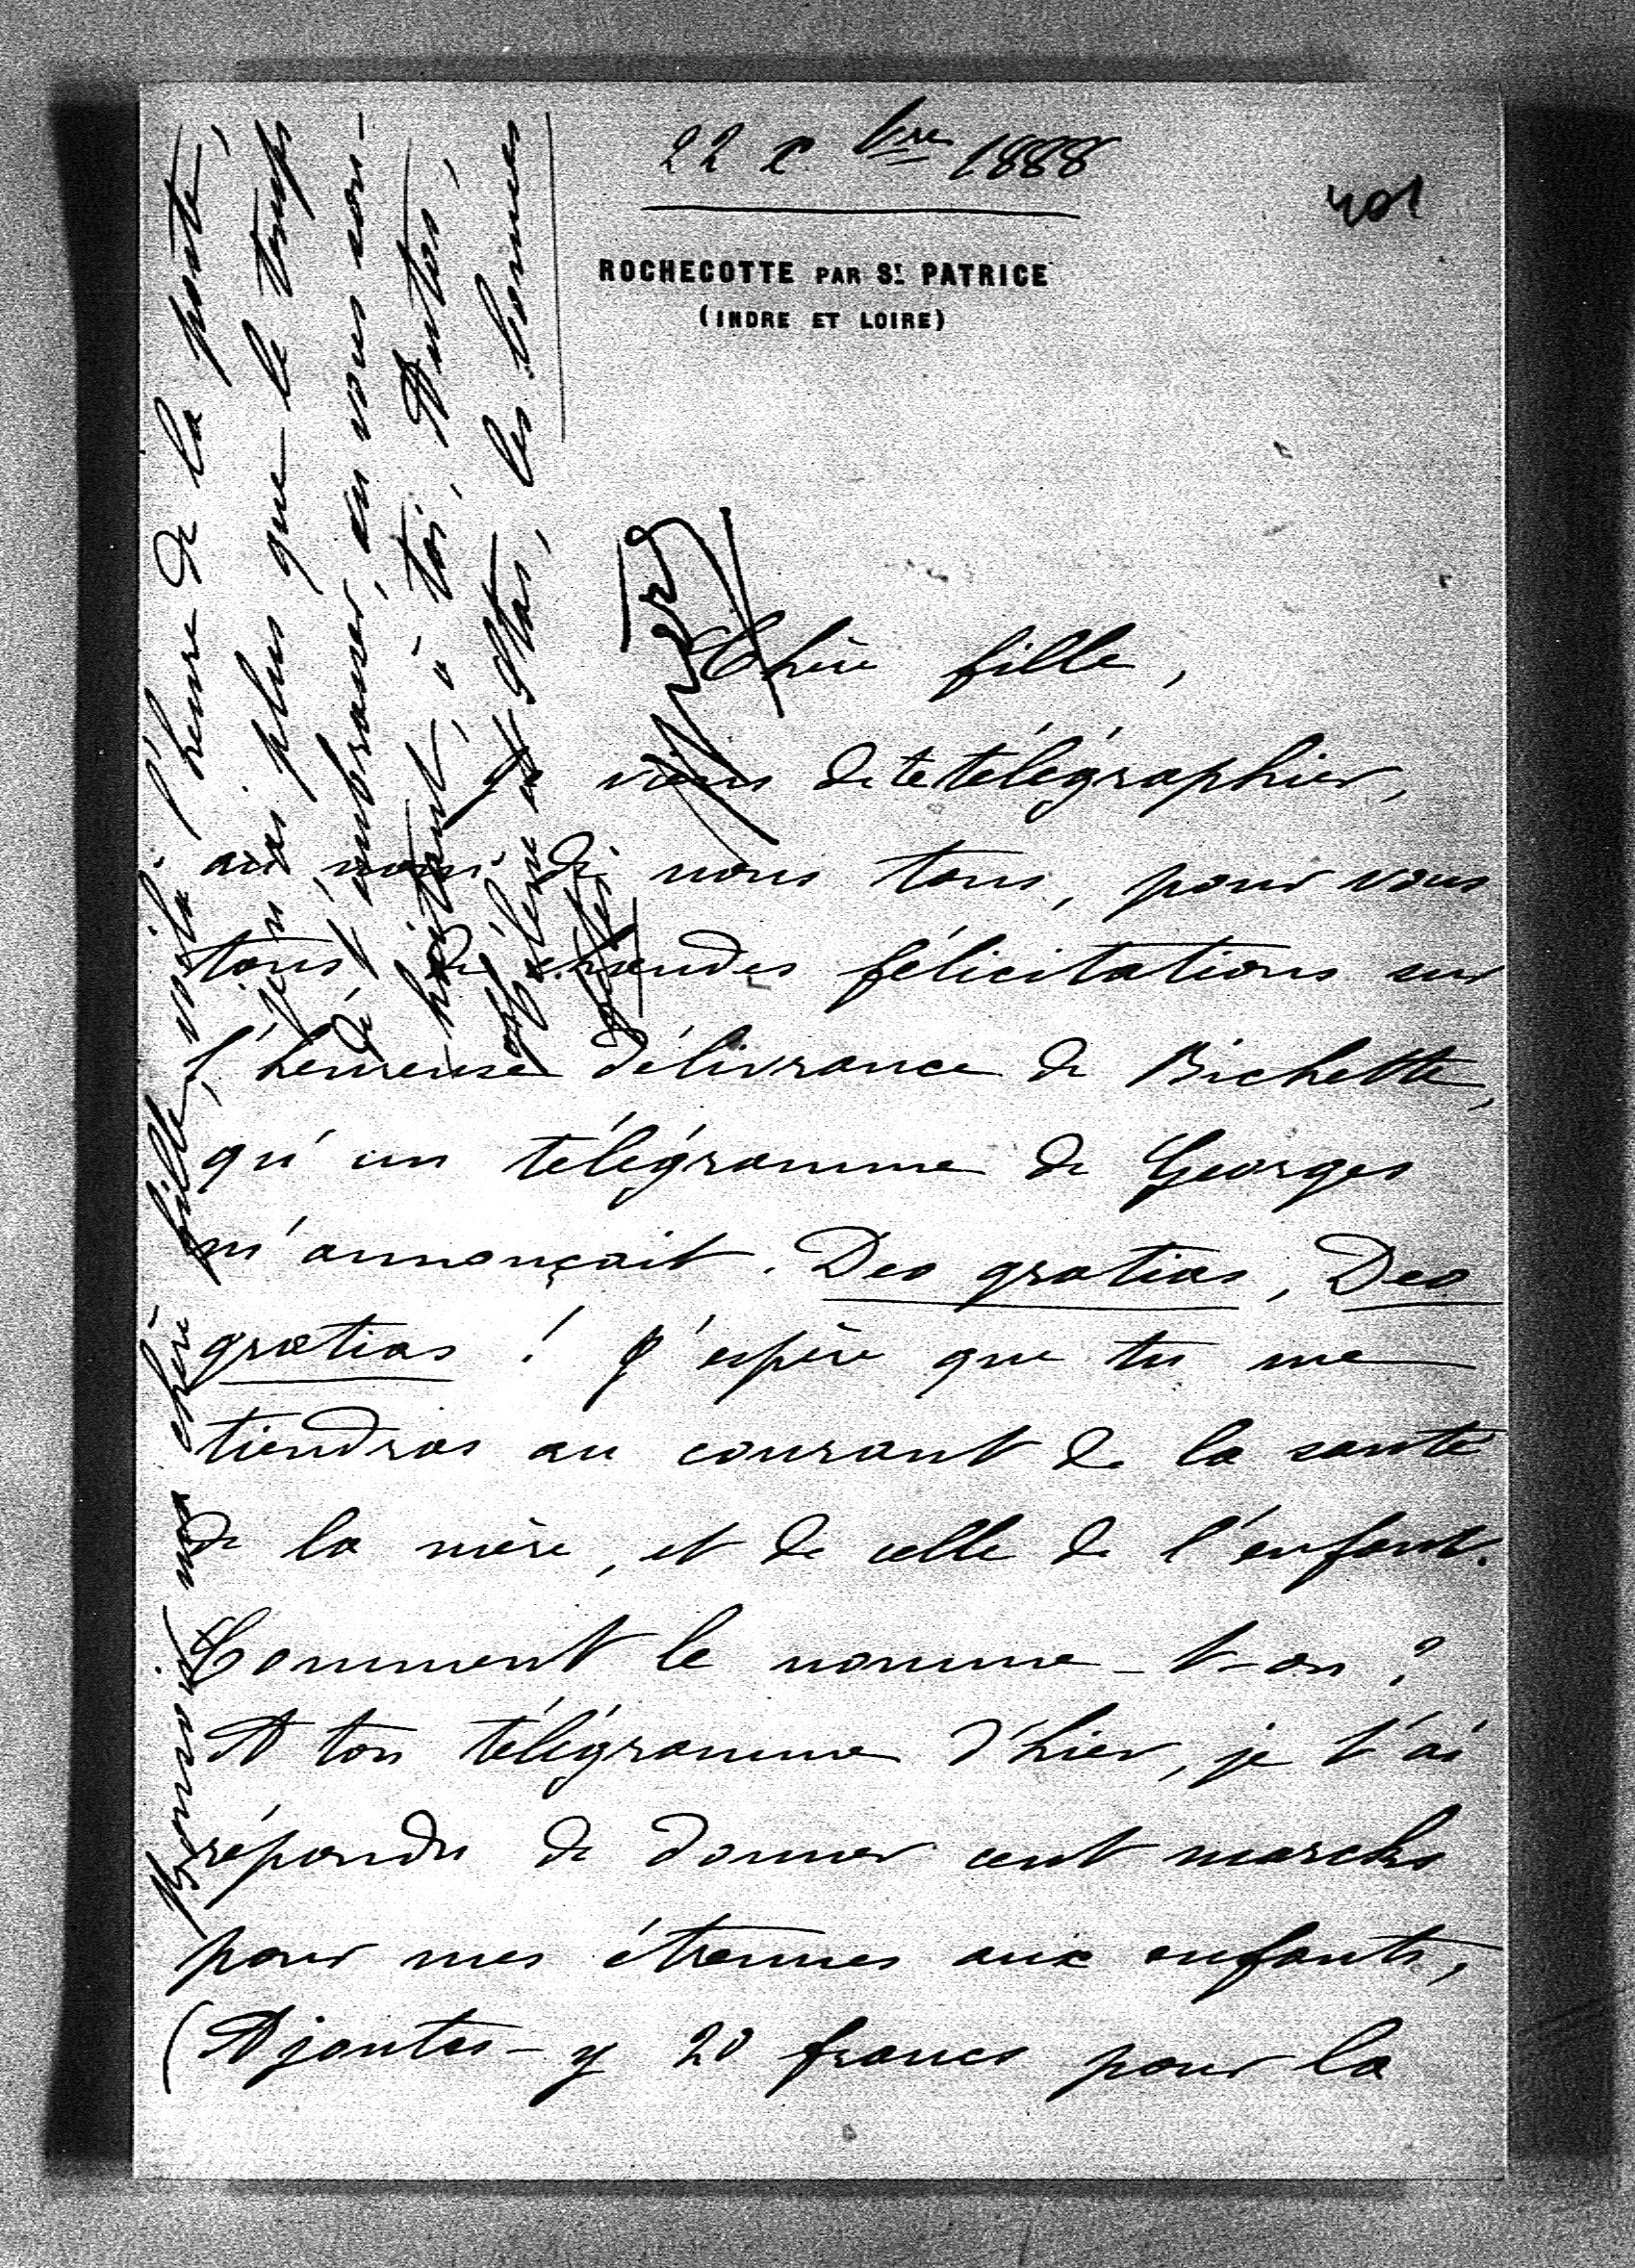 22 Xbre 1888
401
ROCHECOTTE PAR St. PATRICE
(INDRE ET LOIRE)
Chère fille,
Je viens de te télégraphier,
au nom de nous tous, pour vous
tous, de chaudes félicitations sur
l'heureuse délivrance de Bichette,
qu'un télégramme de Georges
m'annonçait. Deo gratias, Deo
gratias ! J'espère que tu me
tiendras au courant de la santé
de la mère, et de celle de l'enfant.
Comment le nomme-t-on ?
A ton télégramme d'hier, je t'ai
répondu de donner cent marcks
pour mes étrennes aux enfants,
(Ajoutes-y 20 francs pour la
ma chère fille, voilà l'heure de la poste,
je n'ai plus que le temps
de t'embrasser, en vous sou-
haitant, à toi,
les bonnes
fêtes